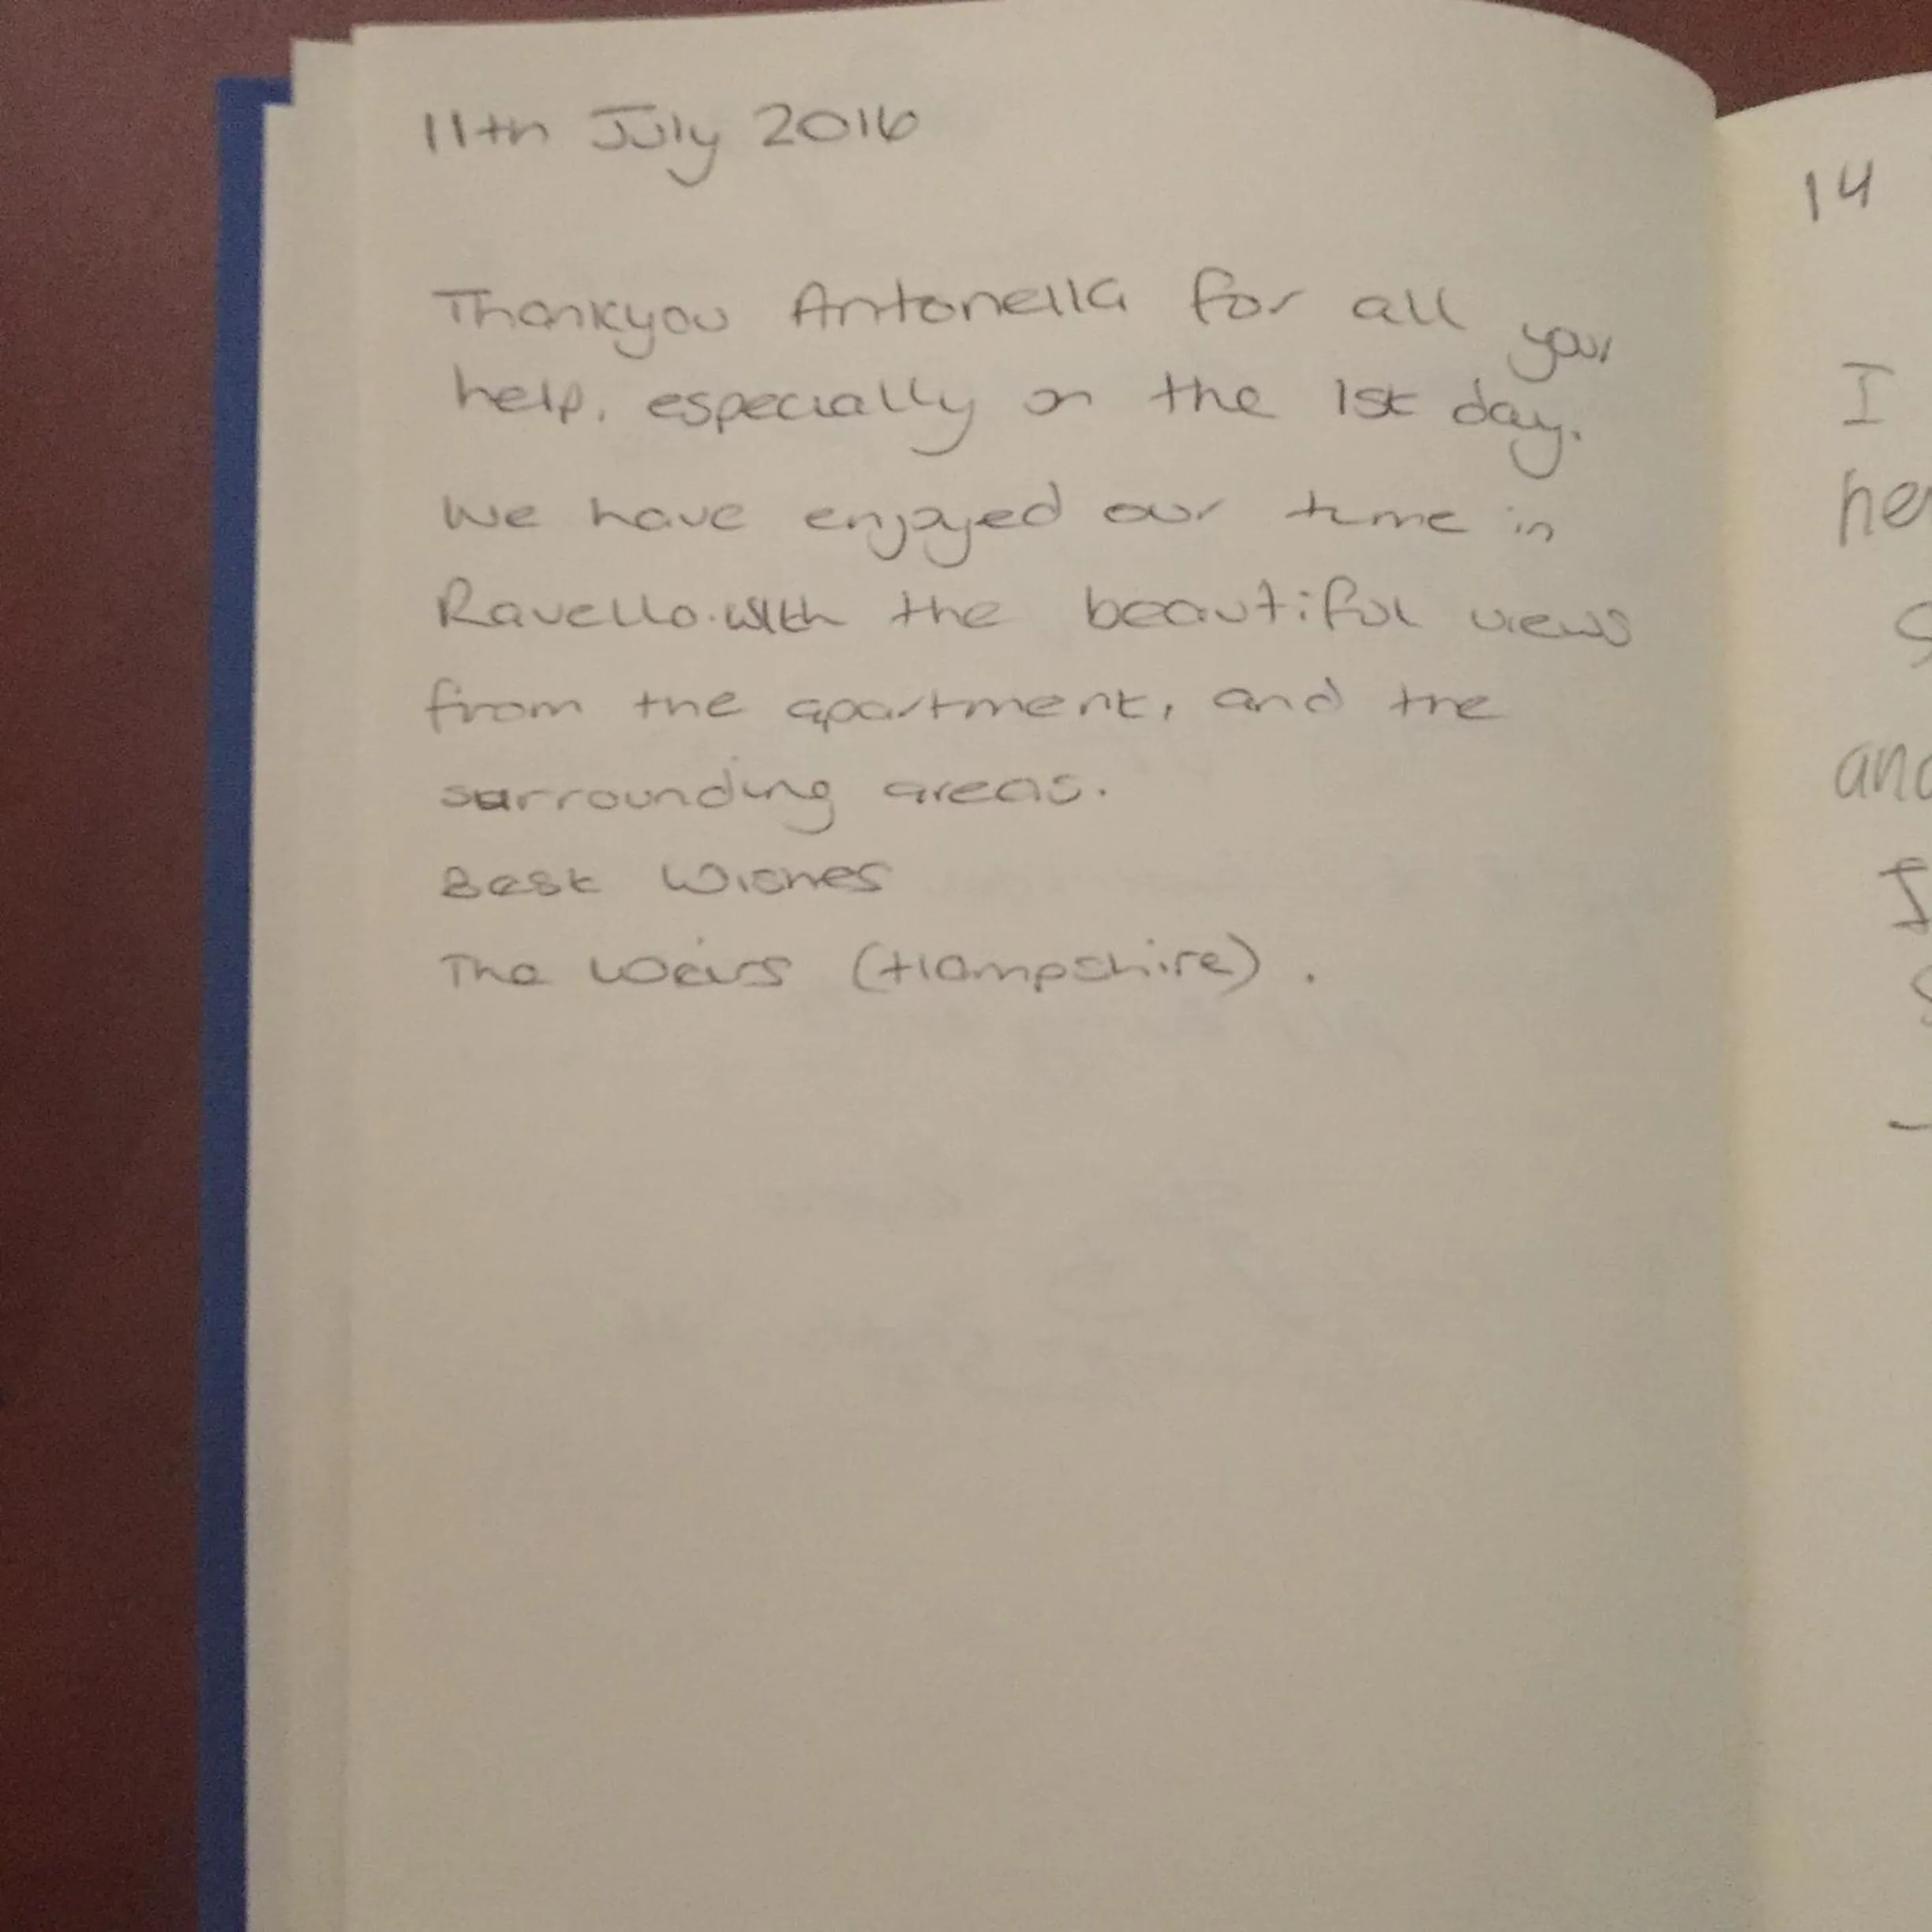 11th July 2016
Thankyou Antonella for all your
help, especially on the 1st day.
We have enjoyed our time in
Ravello with the beautiful views
from the apartment, and the
surrounding areas.
Best Wishes
The Weirs (Hampshire).
14
I
and